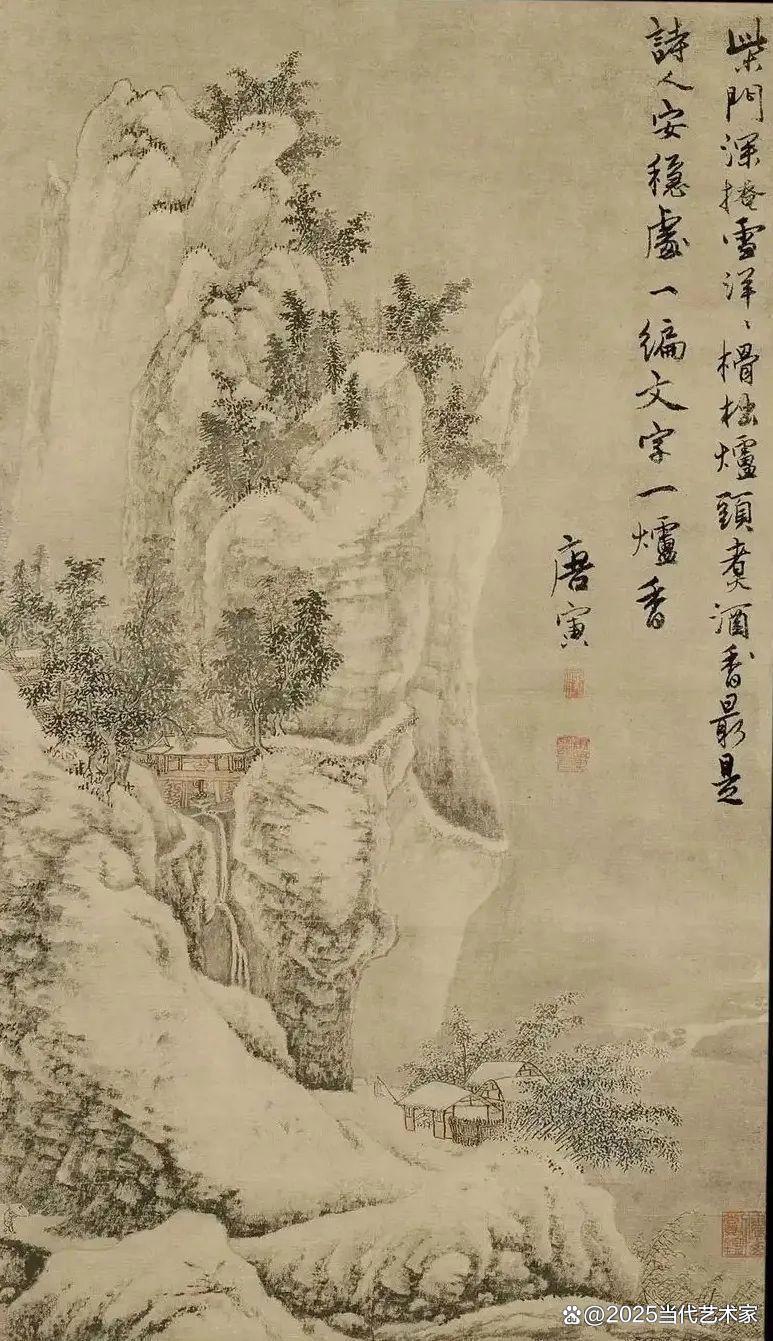 柴門深掩雪洋〻榾柮爐頭煮酒香最是
詩人安穩處一編文字一爐香
唐寅
@2025当代艺术家